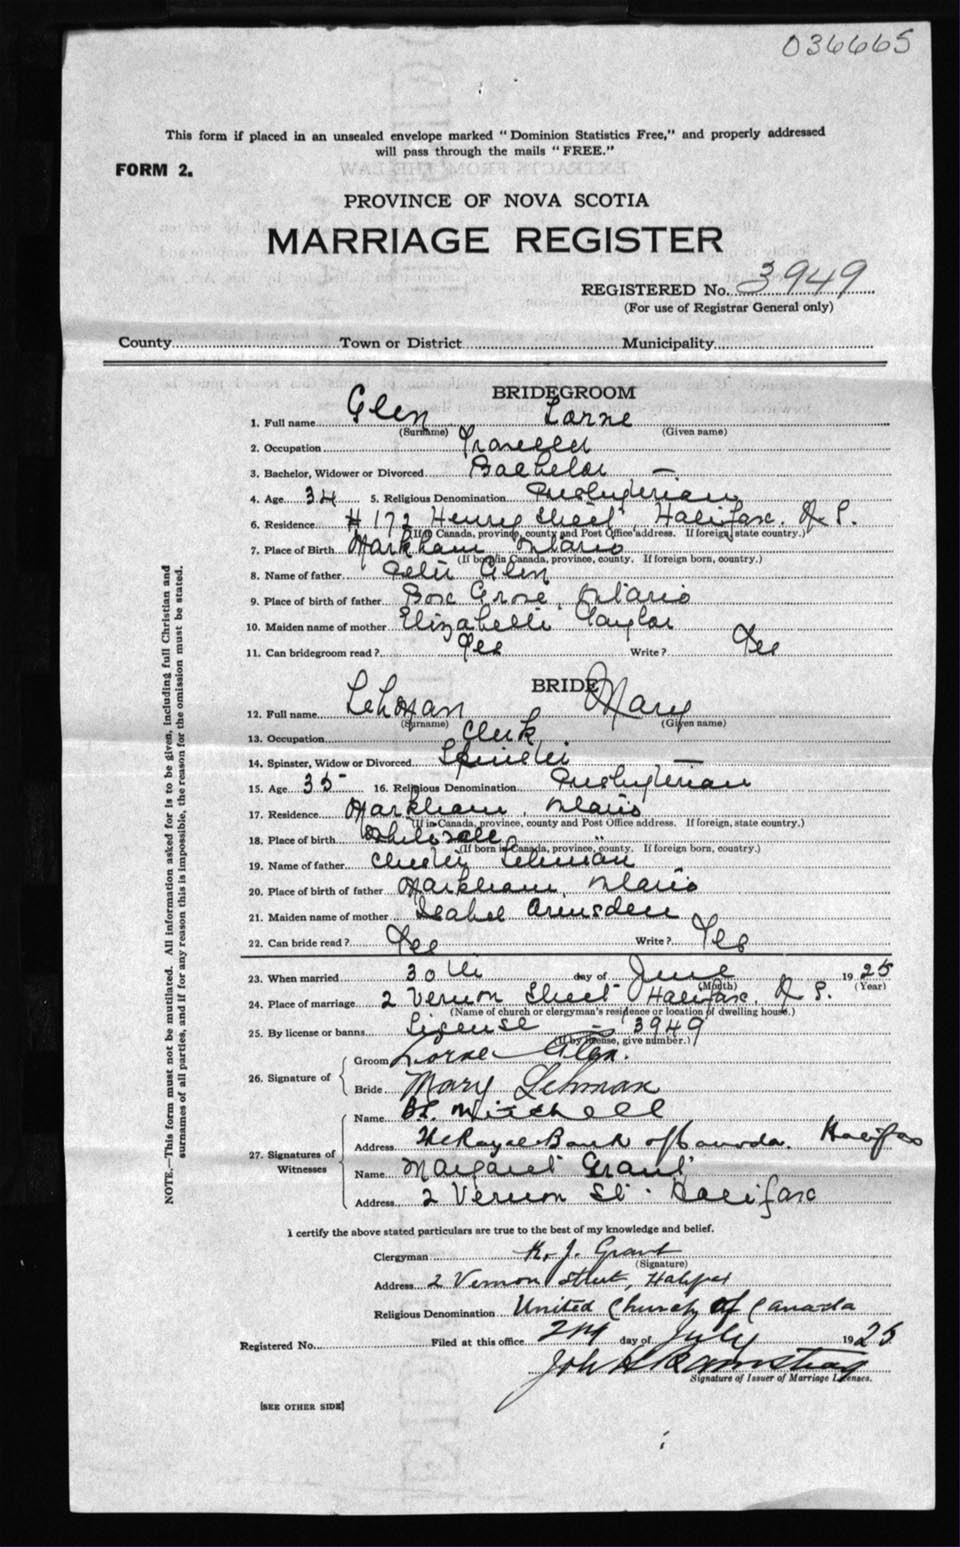 036665
This form if placed in an unsealed envelope marked "Dominion Statistics Free," and properly addressed
will pass through the mails "FREE."
FORM 2.
PROVINCE OF NOVA SCOTIA
MARRIAGE REGISTER
REGISTERED No. 3949
(For use of Registrar General only)
County Town or District Municipality
BRIDEGROOM
1. Full name Glen Lorne
(Surname) (Given name)
2. Occupation Traveller
3. Bachelor, Widower or Divorced Bachelor —
4. Age 34 5. Religious Denomination Presbyterian
6. Residence # 172 Henry Street, Halifax. N. S.
(If in Canada, province, county and Post Office address. If foreign, state country.)
7. Place of Birth Markham Ontario
(If born in Canada, province, county. If foreign born, country.)
8. Name of father Peter Glen
9. Place of birth of father Box Grove, Ontario
10. Maiden name of mother Elizabeth Taylor
11. Can bridegroom read? Yes Write? Yes
BRIDE
12. Full name Lehman Mary
(Surname) (Given name)
13. Occupation Clerk
14. Spinster, Widow or Divorced Spinster
15. Age 35 16. Religious Denomination Presbyterian
17. Residence Markham, Ontario
(If in Canada, province, county and Post Office address. If foreign, state country.)
18. Place of birth
(If born in Canada, province, county. If foreign born, country.)
19. Name of father Lehman
20. Place of birth of father Markham, Ontario
21. Maiden name of mother Isabel
22. Can bride read? Yes Write? Yes
23. When married 30th day of June 1925
(Month) (Year)
24. Place of marriage 2 Vernon Street Halifax, N. S.
(Name of church or clergyman's residence or location of dwelling house.)
25. By license or banns License — 3949
(If by license, give number.)
26. Signature of
Groom Lorne Glen.
Bride Mary Lehman
27. Signatures of Witnesses
Name Mitchell
Address The Royal Bank of Canada. Halifax
Name Margaret Grant
Address 2 Vernon St. Halifax
I certify the above stated particulars are true to the best of my knowledge and belief.
Clergyman K. J. Grant
(Signature)
Address 2 Vernon Street, Halifax
Religious Denomination United Church of Canada
Registered No. Filed at this office 2nd day of July 1925
Signature of Issuer of Marriage Licenses.
[SEE OTHER SIDE]
NOTE.—This form must not be mutilated. All information asked for is to be given, including full Christian and
surnames of all parties, and if for any reason this is impossible, the reason for the omission must be stated.